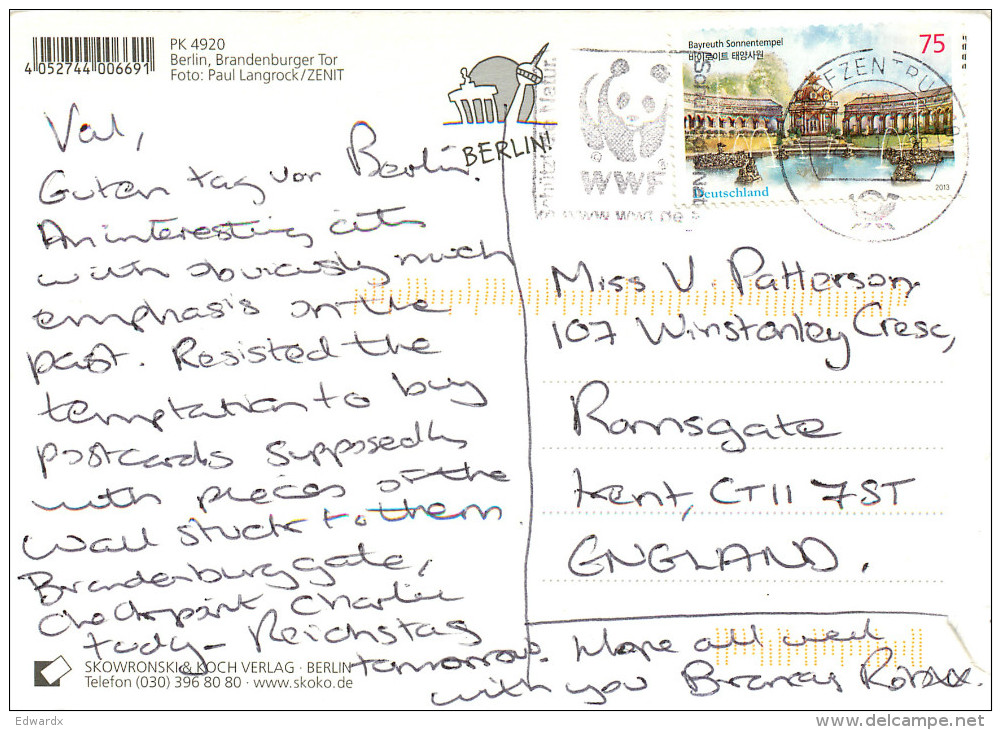 4 052744 006691
PK 4920
Berlin, Brandenburger Tor
Foto: Paul Langrock/ZENIT
BERLIN!
Schützt die Natur
WWF
www.wwf.de
Bayreuth Sonnentempel
바이로이트 태양사원
75
Deutschland
2013
Val,
Guten tag von Berlin.
An interesting city
with obviously much
emphasis on the
past. Resisted the
temptation to buy
postcards supposedly
with pieces of the
Wall stuck to them.
Brandenburg gate,
Checkpoint Charlie
today - Reichstag
tomorrow. Hope all well
with you
Miss V. Patterson,
107 Winstanley Cresc,
Ramsgate
Kent, CT11 7ST
ENGLAND.
SKOWRONSKI & KOCH VERLAG · BERLIN
Telefon (030) 396 80 80 · www.skoko.de
Edwardx
delcampe.net